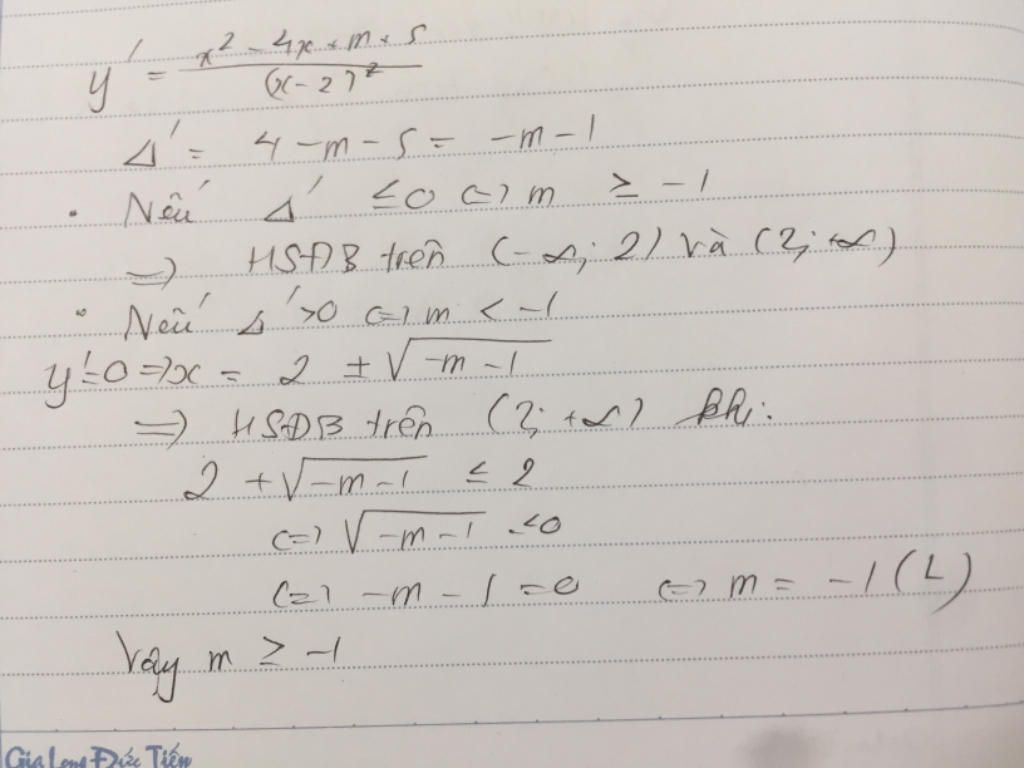 y' = x² - 4x + m + 5 / (x - 2)²
Δ' = 4 - m - 5 = -m - 1
• Nếu Δ' ≤ 0 <=> m ≥ -1
=> HSĐB trên (-∞; 2) và (2; +∞)
• Nếu Δ' > 0 <=> m < -1
y' = 0 => x = 2 ± √(-m - 1)
=> HSĐB trên (2; +∞) khi:
2 + √(-m - 1) ≤ 2
<=> √(-m - 1) ≤ 0
<=> -m - 1 = 0 <=> m = -1 (L)
Vậy m ≥ -1
Gia Long Đức Tiến